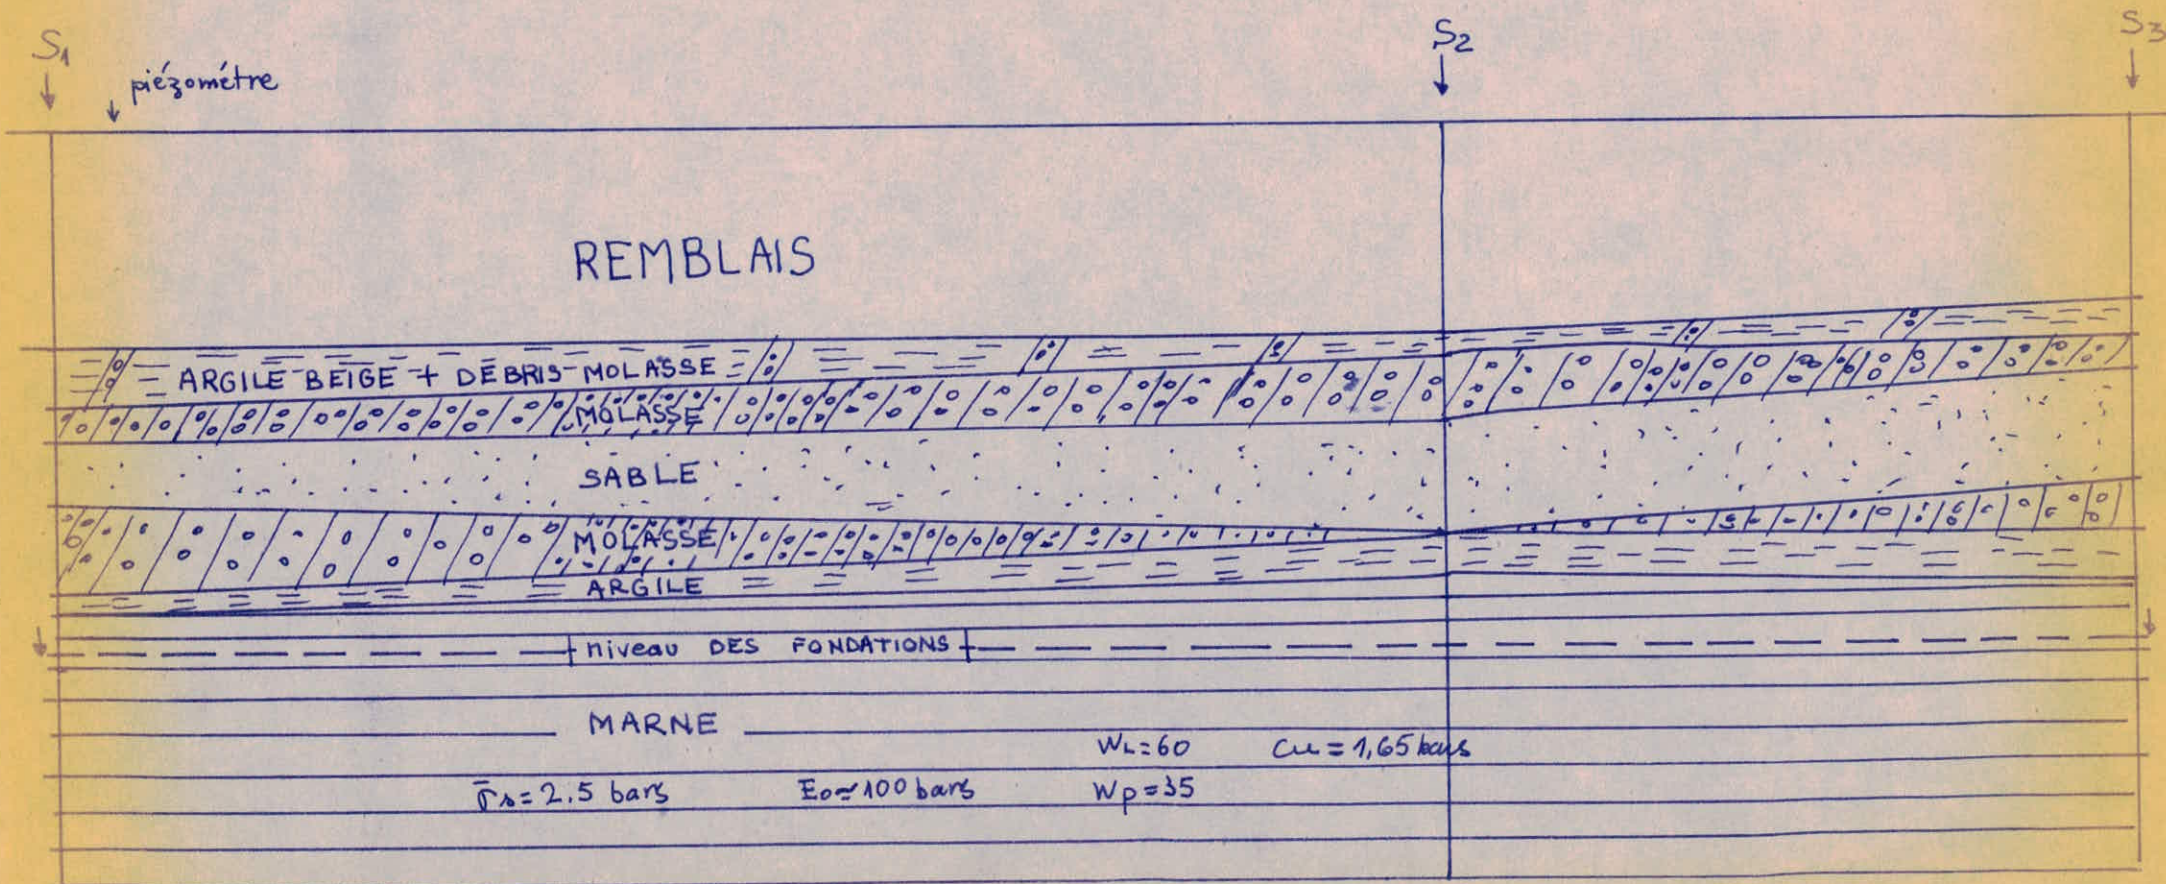 S1
piézométre
S2
S3
REMBLAIS
ARGILE BEIGE + DÉBRIS-MOLASSE
MOLASSE
SABLE
MOLASSE
ARGILE
niveau DES FONDATIONS
MARNE
WL=60 Cu = 1,65 bars
= 2.5 bars Eo≃100 bars Wp=35